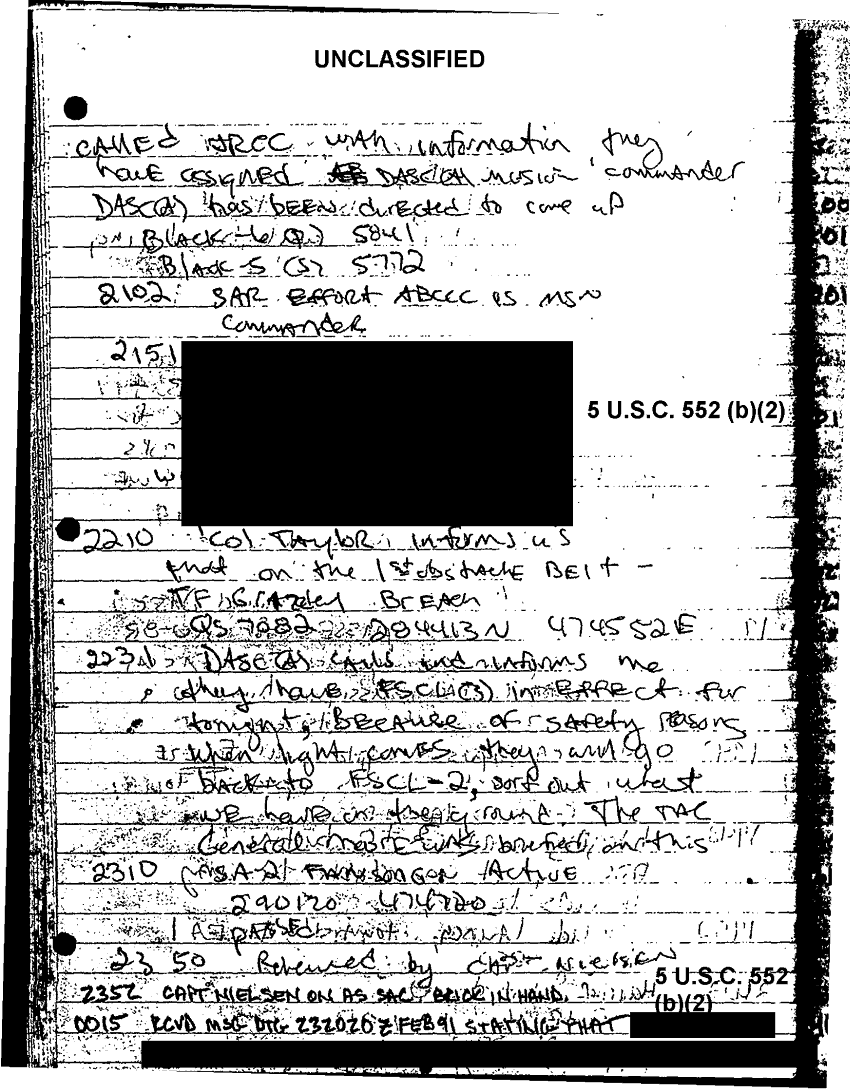 UNCLASSIFIED
CALLED JRCC with information they
have assigned DASC(A) mission commander
DASC(A) has BEEN directed to come up
on BLACK-6 (P) 5841
Black-5 (S) 5772
2102 SAR EFFORT ABCCC is MSN
Commander
2151
5 U.S.C. 552 (b)(2)
2210 Col TAYLOR informs us
that on the 1st obstACLE BElt -
TF BREACH
QS 7882 284413N 474552E
DASC(A) calls and informs me
they have FSCL in EFFECT for
tonight, BECAUSE of SAFETY reasons
when light comes they will go
back to FSCL-2, sort out what
we have on the ground. The TAC
General was briefed on this
2310 SA-2 FANSONG Active
290170 474720
AS PASSED
2350 Relieved by CAPT NIELSEN
5 U.S.C. 552
(b)(2)
2352 CAPT NIELSEN ON AS SAC. BRICK IN HAND.
0015 RCVD MSG DTG 232020Z FEB 91 STATING THAT